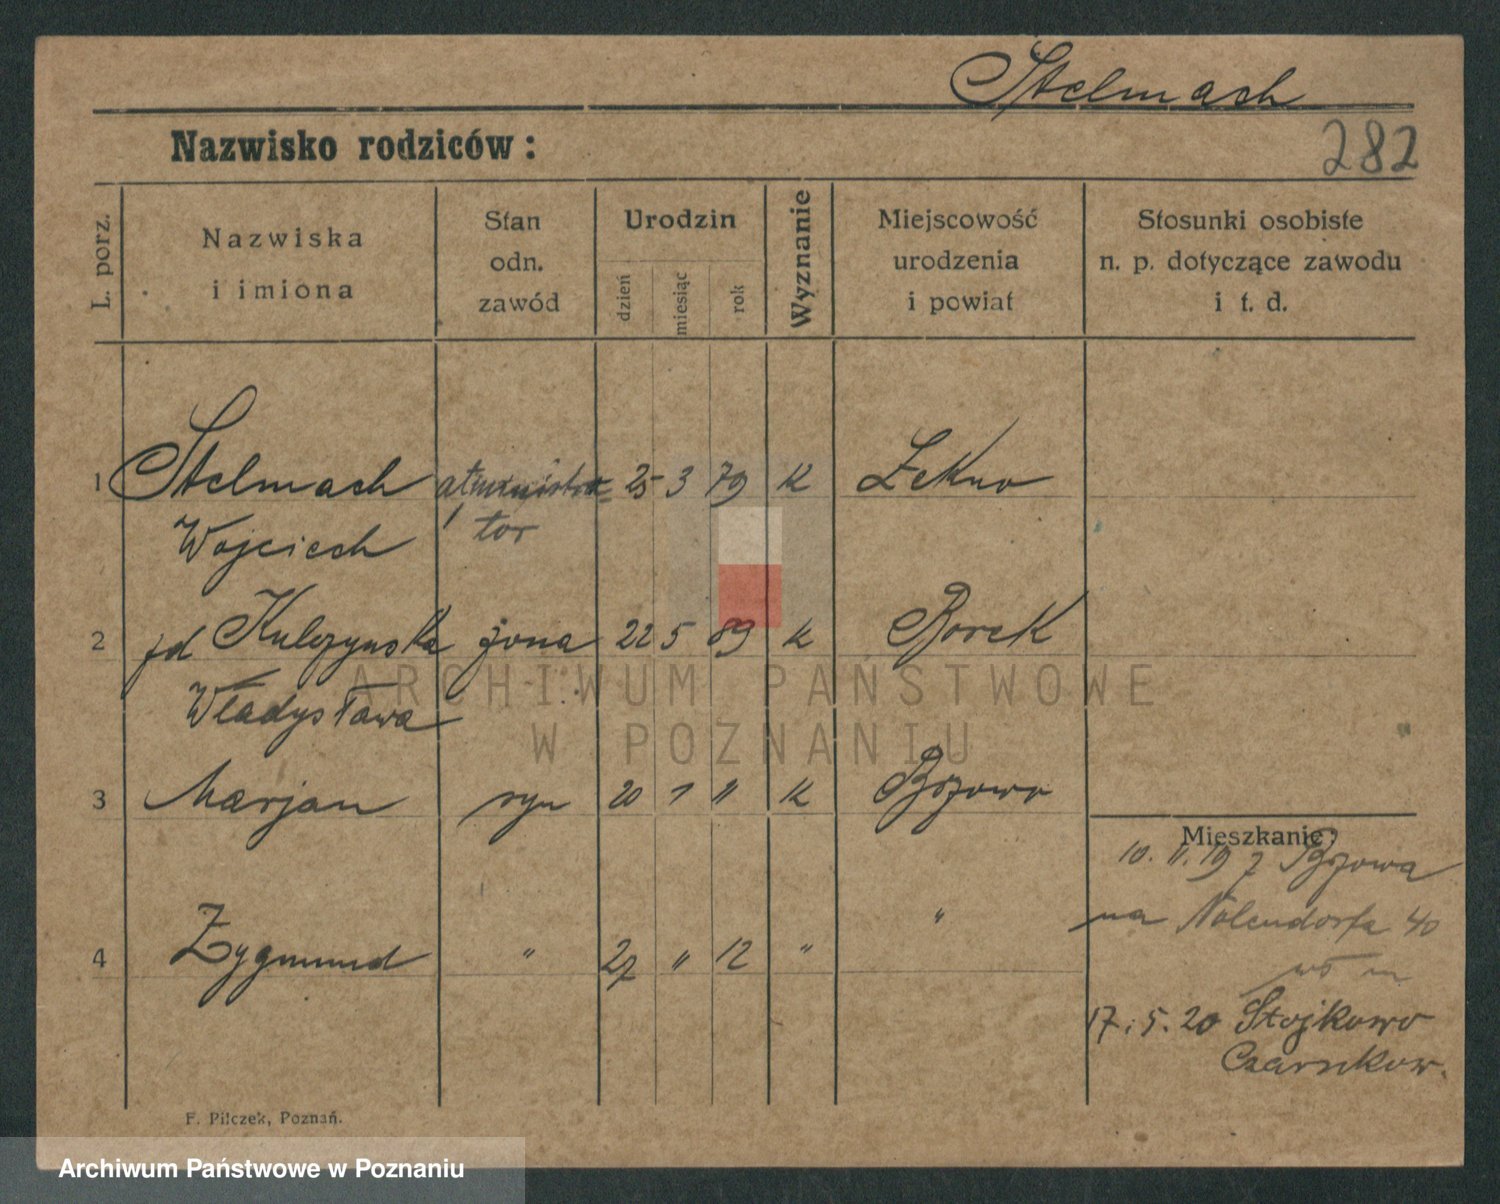 Stelmach
Nazwisko rodziców:
282
L. porz.
Nazwiska
i imiona
Stan
odn.
zawód
Urodzin
dzień
miesiąc
rok
Wyznanie
Miejscowość
urodzenia
i powiat
Stosunki osobiste
n. p. dotyczące zawodu
i t. d.
1 Stelmach 25 3 79 k Łekno
Wojciech tor
2 Kulczynska żona 22 5 89 k Borek
Władysława
3 Marjan syn 20 1 " k Bzowo
Mieszkanie:
10. II. 19 z Bzowa
na Nolendorfa 40
4 Zygmund " 27 " 12 " "
17. 5. 20 Stojkowo
Czarnkow.
F. Pilczek, Poznań.
ARCHIWUM PAŃSTWOWE
W POZNANIU
Archiwum Państwowe w Poznaniu